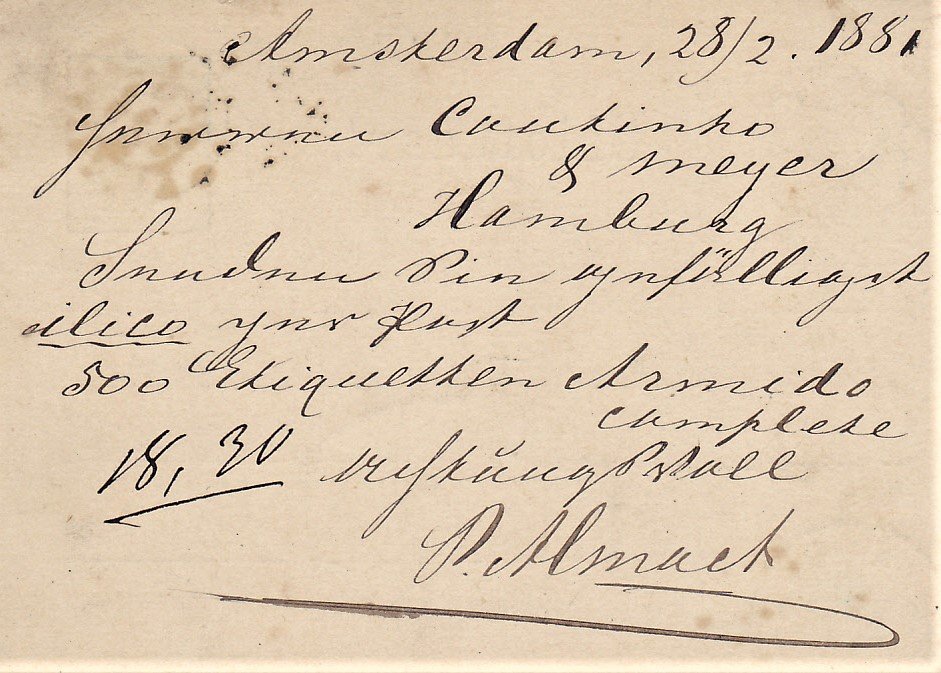 Amsterdam, 28/2. 1881
Herren Coutinho
& Meyer
Hamburg
Senden Sie gefälligst
ilico per Post
500 Etiquetten Armido
complete
18,30 achtungsvoll